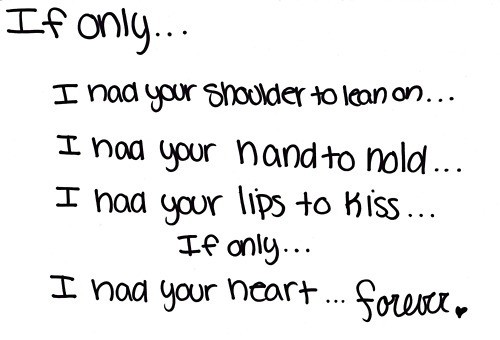 If only...
I had your shoulder to lean on...
I had your hand to hold...
I had your lips to kiss...
If only...
I had your heart... forever.